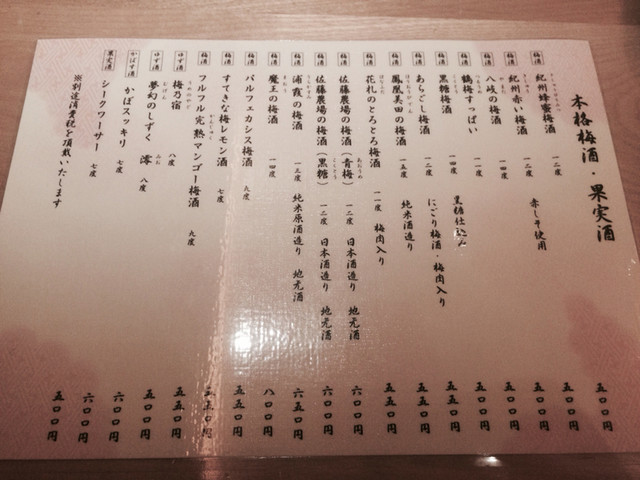 本格梅酒・果実酒
梅酒 紀州蜂蜜梅酒 一二度 五〇〇円
梅酒 紀州赤い梅酒 一二度 赤しそ使用 五五〇円
梅酒 八岐の梅酒 一一度 五〇〇円
梅酒 鶴梅すっぱい 一一度 五〇〇円
梅酒 黒糖梅酒 一四度 黒糖仕込み 五〇〇円
梅酒 あらごし梅酒 一二度 にごり梅酒・梅肉入り 五五〇円
梅酒 鳳凰美田の梅酒 一五度 純米酒造り 五五〇円
梅酒 花札のとろとろ梅酒 一一度 梅肉入り 五〇〇円
梅酒 佐藤農場の梅酒(青梅) 一二度 日本酒造り 地元酒 六〇〇円
梅酒 佐藤農場の梅酒(黒糖) 一二度 日本酒造り 地元酒 六〇〇円
梅酒 浦霞の梅酒 一三度 純米原酒造り 地元酒 六五〇円
梅酒 魔王の梅酒 一四度 八〇〇円
梅酒 パルフェカシス梅酒 九度 五五〇円
梅酒 すてきな梅レモン酒 七度 五五〇円
梅酒 フルフル完熟マンゴー梅酒 九度 五五〇円
ゆず酒 梅乃宿 八度 五五〇円
ゆず酒 夢幻のしずく 澪 八度 五〇〇円
かぼす酒 かぼスッキリ 七度 六〇〇円
果実酒 シークワーサー 七度 六〇〇円
※別途消費税を頂戴いたします 五〇〇円